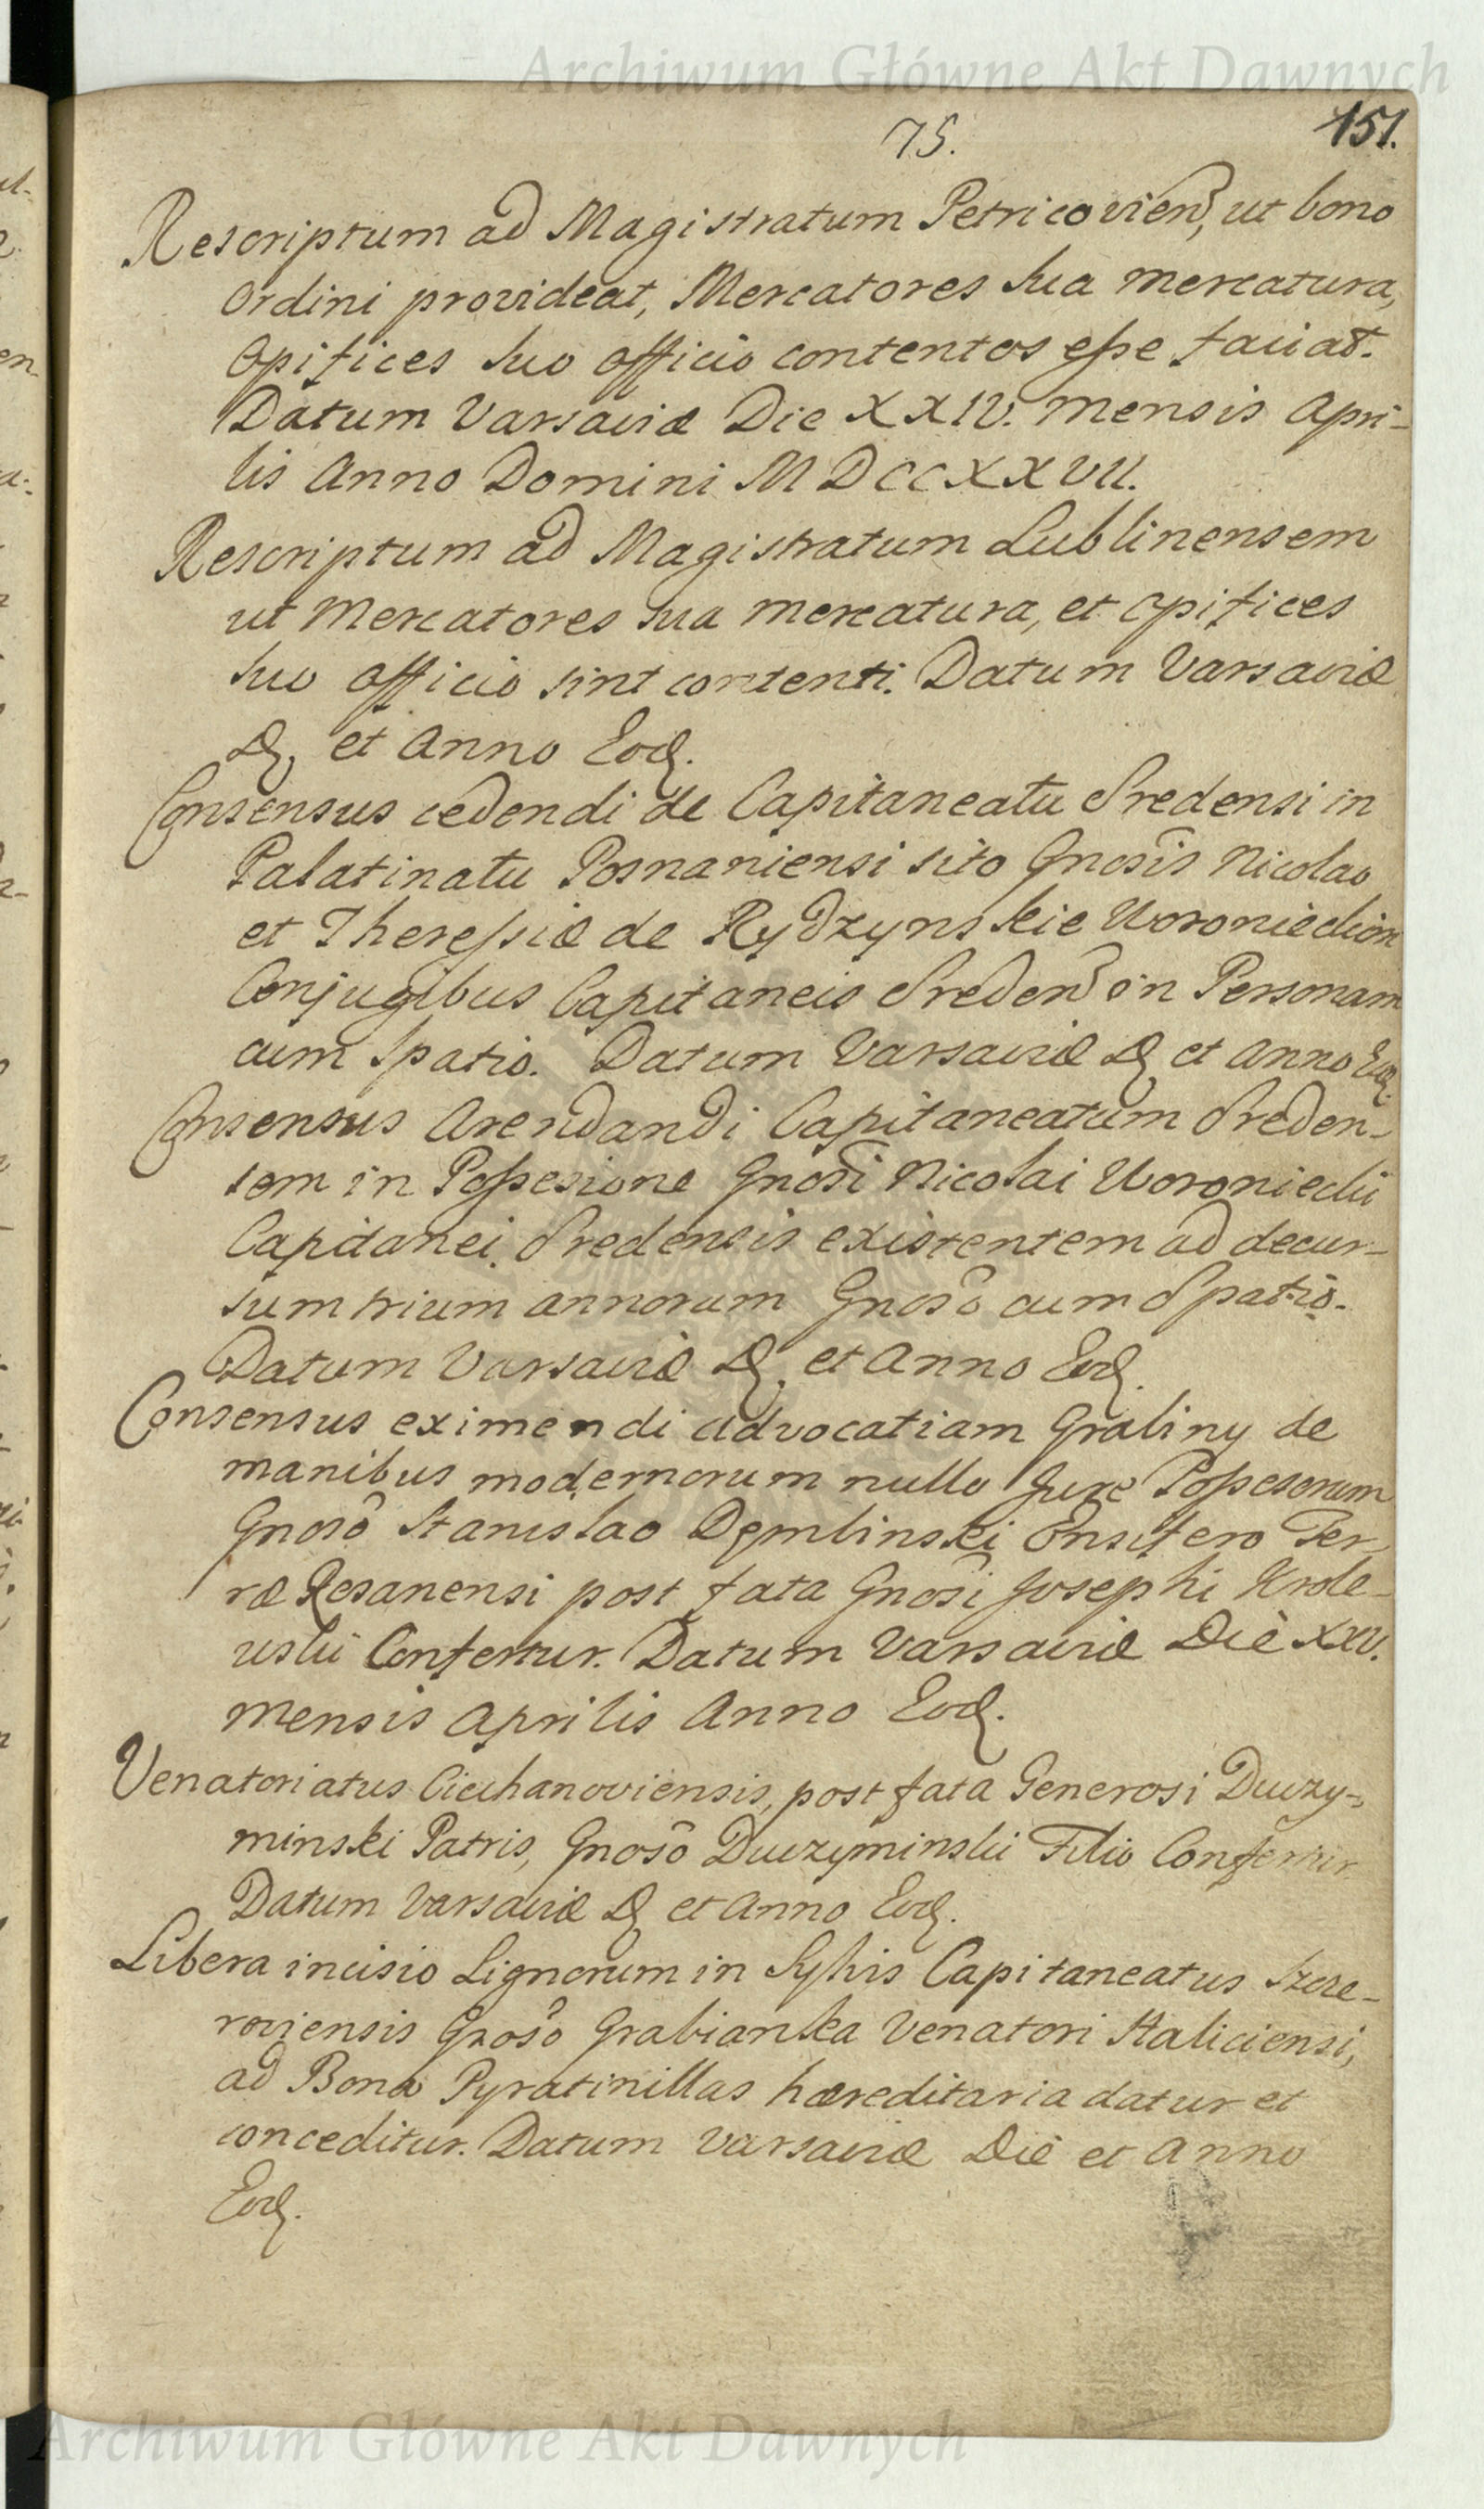 Archiwum Główne Akt Dawnych
75.
151.
Rescriptum ad Magistratum Petricovien, ut bono
Ordini provideat, Mercatores sua mercatura,
Opifices suo officio contentos eſse faciat.
Datum Varsaviæ Die XXIV. mensis Apri-
lis Anno Domini MDCCXXVII.
Rescriptum ad Magistratum Lublinensem
ut Mercatores sua mercatura, et opifices
suo officio sint contenti. Datum Varsaviæ
D. et Anno Eod.
Consensus cedendi de Capitaneatu Sredensi in
Palatinatu Posnaniensi sito Gnosis Nicolao
et Thereſsiæ de Rydzynskie Woronieckim
Conjugibus Capitaneis Sreden in Personam
cum Spatio. Datum Varsaviæ D. et Anno Eod.
Consensus Arendandi Capitaneatum Sreden-
sem in Poſsesione Gnosi Nicolai Woroniecki
Capitanei Sredensis existentem ad decur-
sum trium annorum Gnoso cum Spatio.
Datum Varsaviæ D. et Anno Eod.
Consensus eximendi advocatiam Grabiny de
manibus modernorum nullo Jure Poſsesorum
Gnoso Stanislao Dembinski Ensifero Ter-
ræ Resanensi post fata Gnosi Josephi Krole-
wski Confertur. Datum Varsaviæ Die XXV.
mensis Aprilis Anno Eod.
Venatoriatus Ciechanoviensis, post fata Generosi Duczy-
minski Patris, Gnoso Duczyminski Filio Confertur
Datum Varsaviæ D. et Anno Eod.
Libera incisio Lignorum in Sylvis Capitaneatus
roviensis Gnoso Grabianka Venatori Haliciensi,
ad Bona Pyratinillas hæreditaria datur et
conceditur. Datum Varsaviæ Die et Anno
Eod.
Archiwum Główne Akt Dawnych